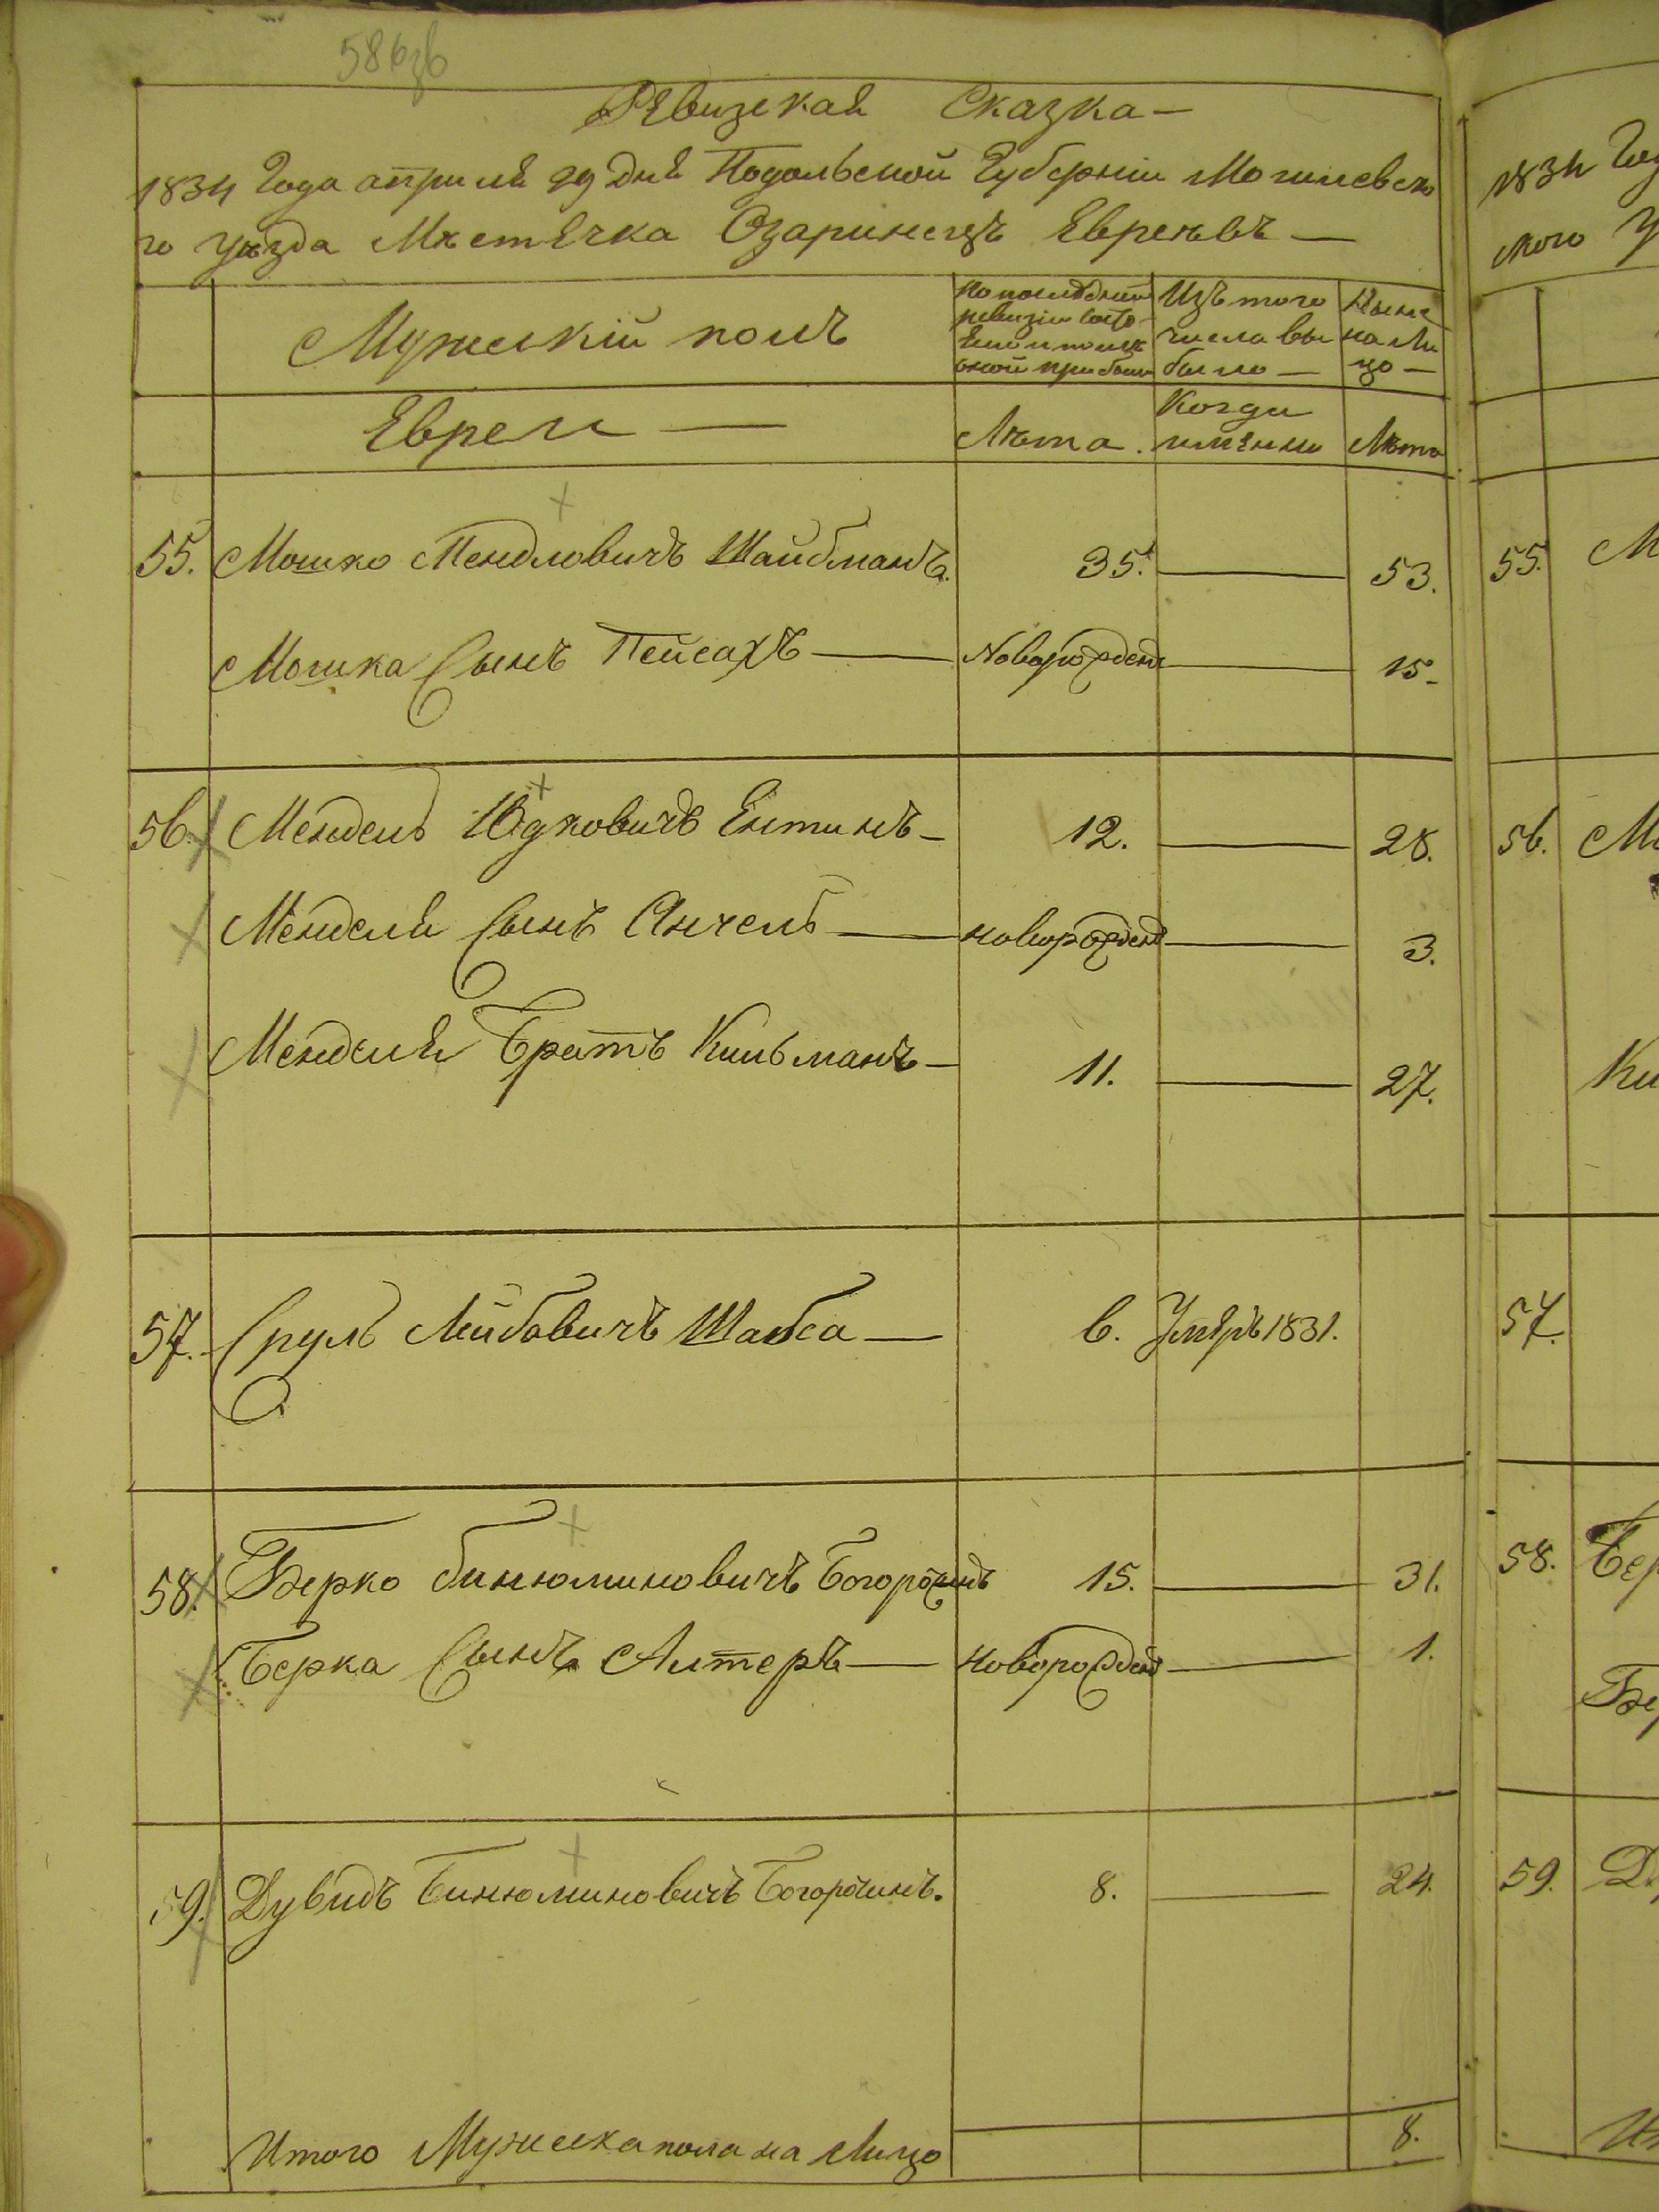 586зв
Ревизская Сказка —
1834 Года апреля 29 дня Подольской Губернии Могилевско
го уѣзда Мѣстечка Озаринецъ Евреевъ —
Мужескій полъ
По последней
ревизіи состо
Изъ того
числа вы
было —
Ныне
на Ли
цо —
Евреи —
Лѣта.
Когда
именно
Лѣта
55. Мошко Мендловичъ Шайбманъ. 35. — 53.
Мошка Сынъ Пейсахъ — Новорожден — 15-
56. Мендель Юдковичъ Ентинъ — 12. — 28.
Менделя Сынъ Анчель — новорожден — 3.
Менделя Братъ Кильманъ — 11. — 27.
57. Сруль Лейбовичъ Шабса — 6. Умеръ 1831.
58. Берко Бинюминовичъ Богорочинъ 15. — 31.
Берка Сынъ Алтеръ — новорожден — 1.
59. Дувидъ Бинюминовичъ Богорочинъ. 8. — 24.
Итого Мужеска пола на Лицо 8.
1834 Год
мого У
55. М
56. М
Ки
57.
58. Бер
Бе
59. Д
Ит